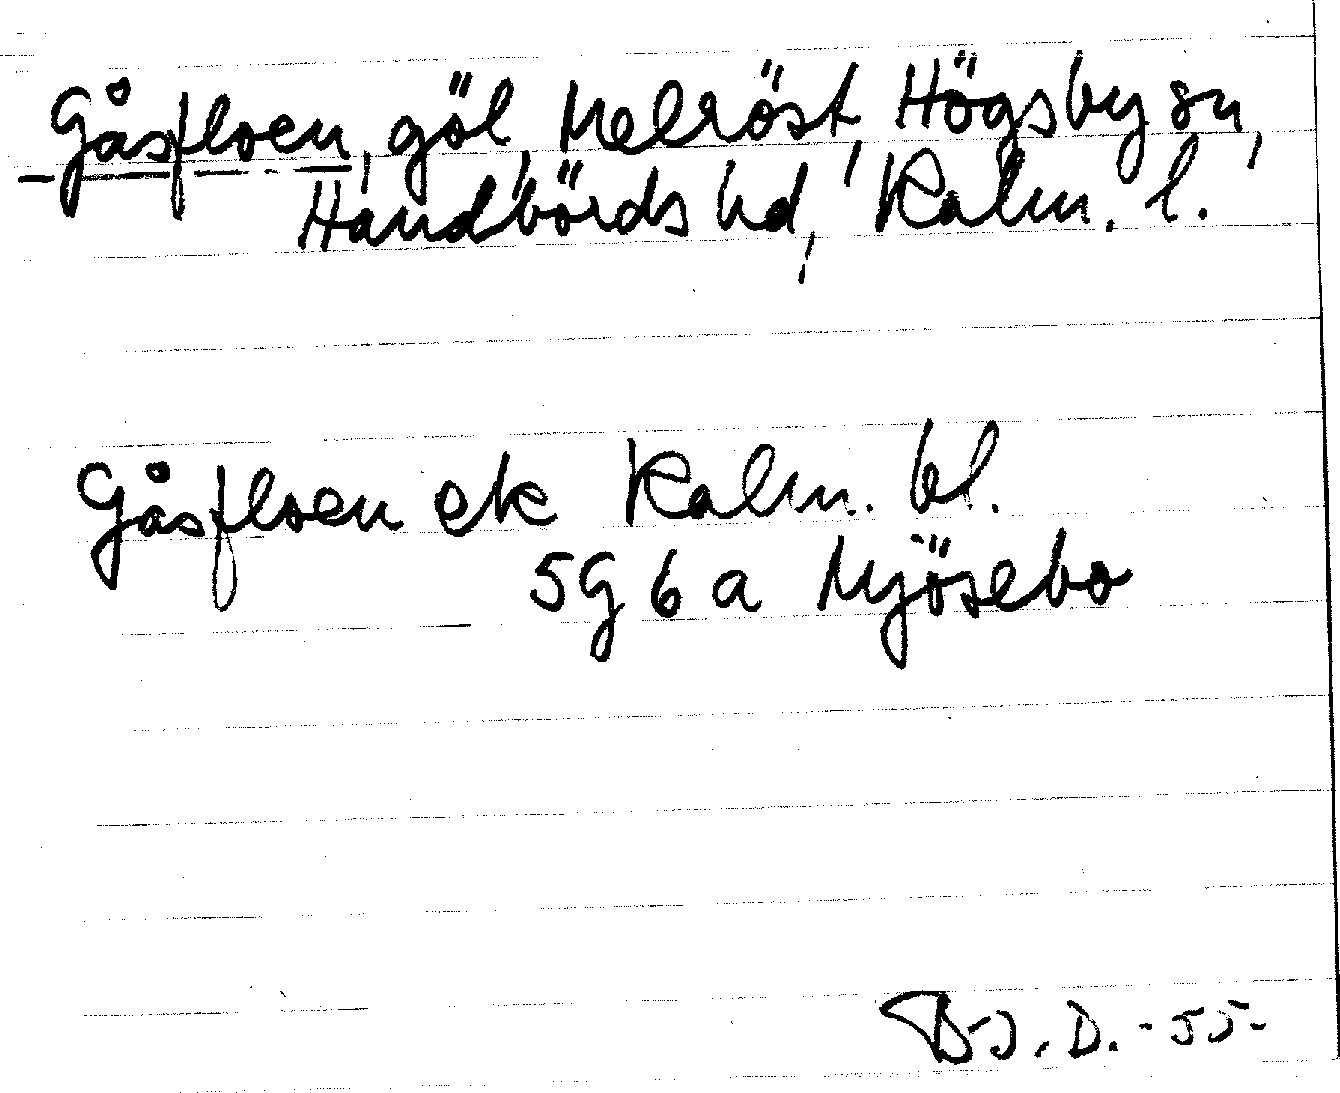 Gåsfloen, göl, Melröst, Högsby sn,
Handbörds hd, Kalm. l.
Gåsfloen ek Kalm. bl.
5G 6 a Mjösebo
B-J. D. -55-